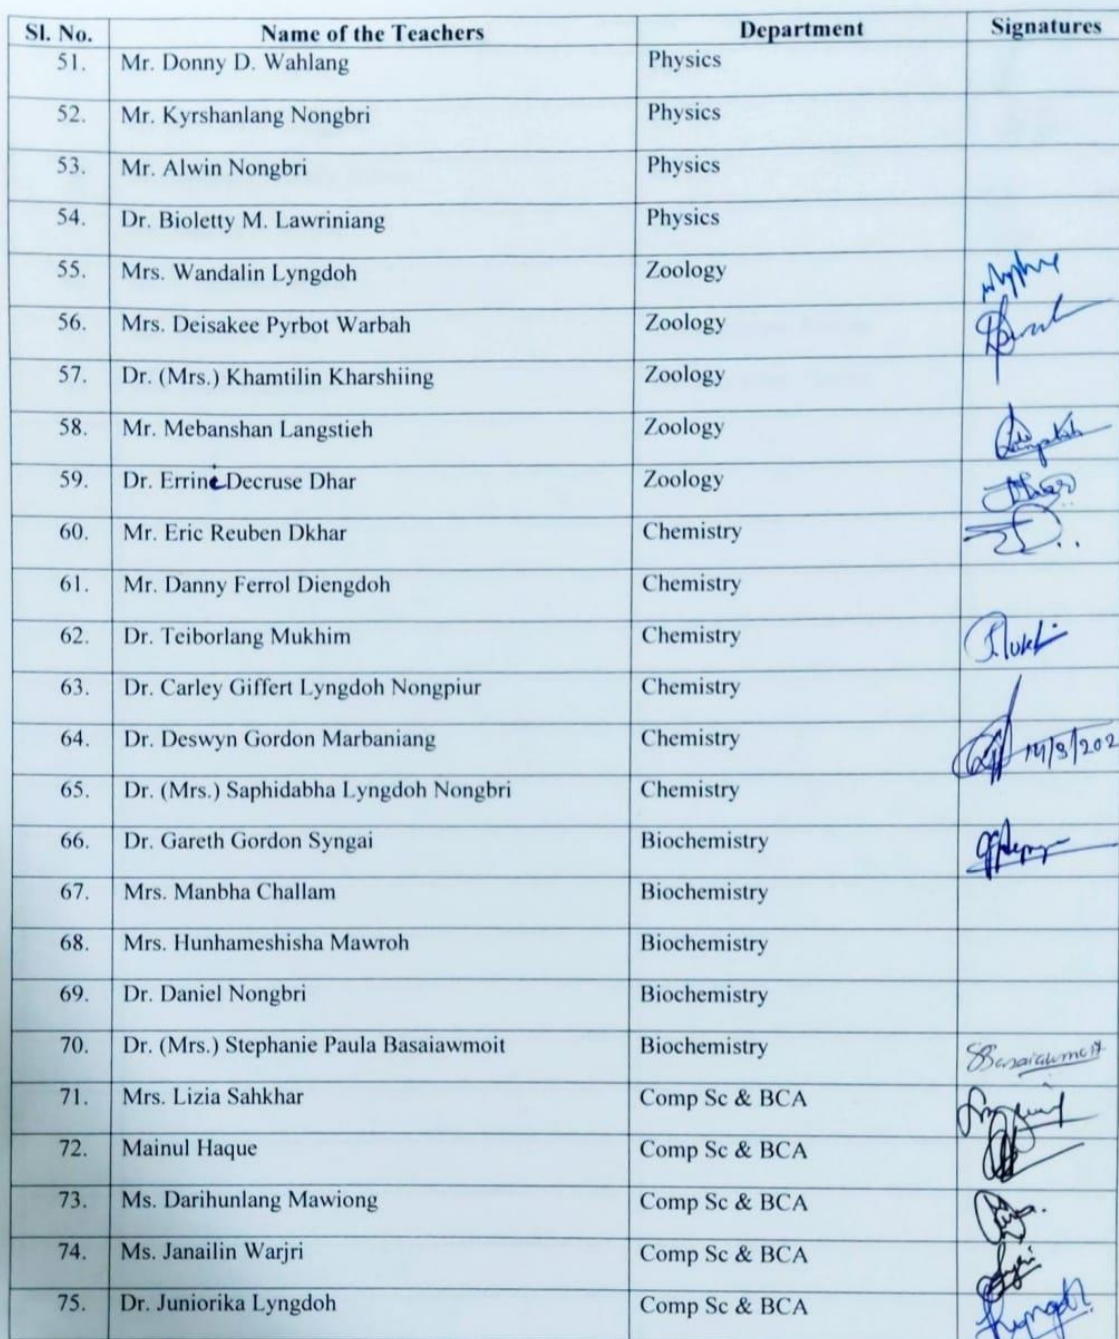 Sl. No. Name of the Teachers Department Signatures
51. Mr. Donny D. Wahlang Physics
52. Mr. Kyrshanlang Nongbri Physics
53. Mr. Alwin Nongbri Physics
54. Dr. Bioletty M. Lawriniang Physics
55. Mrs. Wandalin Lyngdoh Zoology
56. Mrs. Deisakee Pyrbot Warbah Zoology
57. Dr. (Mrs.) Khamtilin Kharshiing Zoology
58. Mr. Mebanshan Langstieh Zoology
59. Dr. Errine Decruse Dhar Zoology
60. Mr. Eric Reuben Dkhar Chemistry
61. Mr. Danny Ferrol Diengdoh Chemistry
62. Dr. Teiborlang Mukhim Chemistry
63. Dr. Carley Giffert Lyngdoh Nongpiur Chemistry
64. Dr. Deswyn Gordon Marbaniang Chemistry
65. Dr. (Mrs.) Saphidabha Lyngdoh Nongbri Chemistry
66. Dr. Gareth Gordon Syngai Biochemistry
67. Mrs. Manbha Challam Biochemistry
68. Mrs. Hunhameshisha Mawroh Biochemistry
69. Dr. Daniel Nongbri Biochemistry
70. Dr. (Mrs.) Stephanie Paula Basaiawmoit Biochemistry SBasaiawmoit
71. Mrs. Lizia Sahkhar Comp Sc & BCA
72. Mainul Haque Comp Sc & BCA
73. Ms. Darihunlang Mawiong Comp Sc & BCA
74. Ms. Janailin Warjri Comp Sc & BCA
75. Dr. Juniorika Lyngdoh Comp Sc & BCA